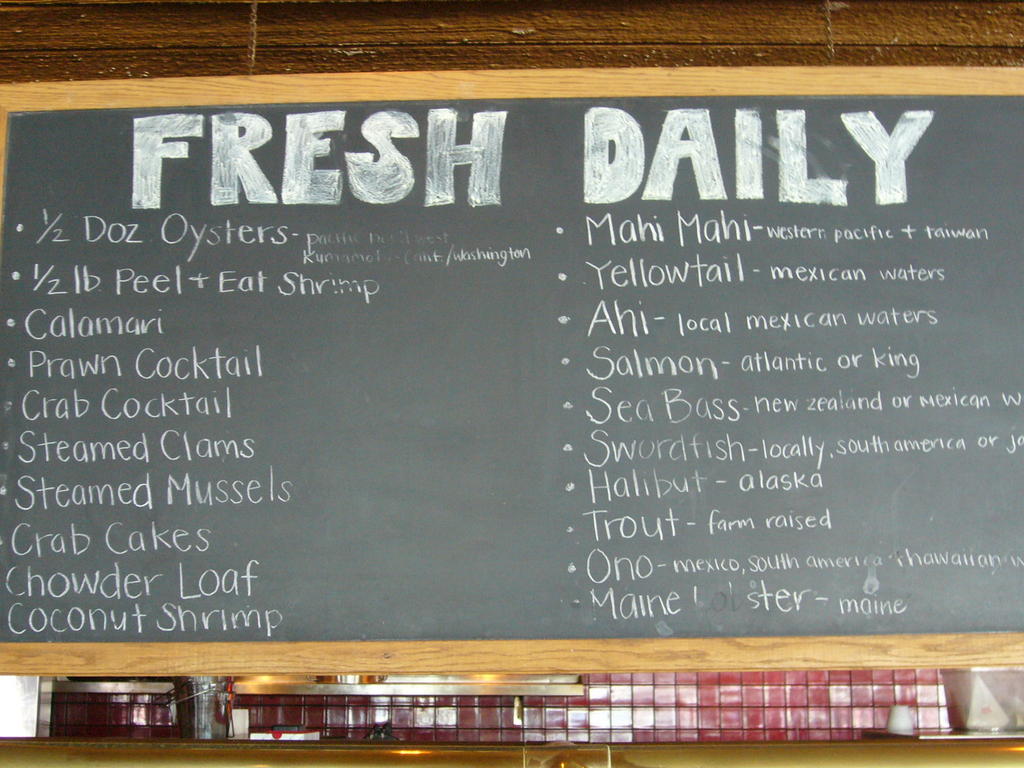 FRESH DAILY
• 1/2 Doz Oysters - pacific
Kumamot /washington
• 1/2 lb Peel + Eat Shrimp
• Calamari
• Prawn Cocktail
• Crab Cocktail
• Steamed Clams
• Steamed Mussels
• Crab Cakes
Chowder Loaf
Coconut Shrimp
• Mahi Mahi - western pacific + taiwan
• Yellowtail - mexican waters
• Ahi - local mexican waters
• Salmon - atlantic or king
• Sea Bass - new zealand or mexican w
• Swordfish - locally, south america or
• Halibut - alaska
• Trout - farm raised
• Ono - mexico, south america + hawaiian
• Maine Lobster - maine